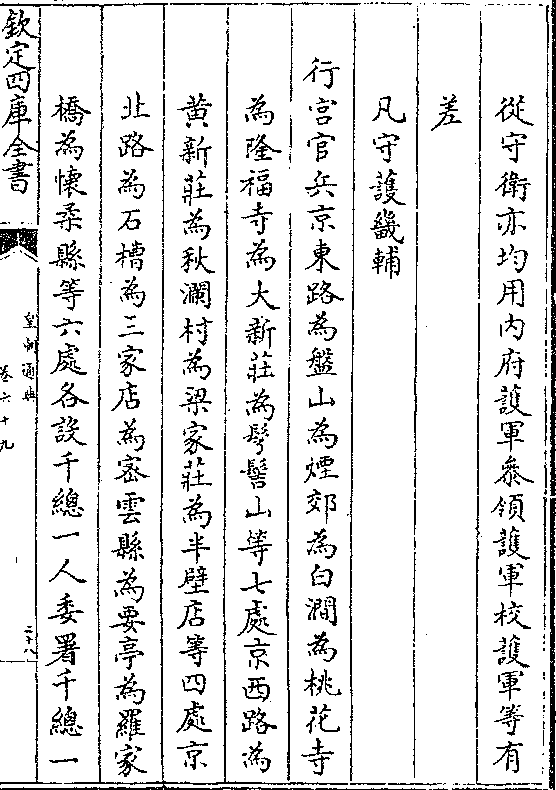 從守衛亦均用内府護軍叅領護軍校護軍等有
差
凡守護畿輔
行宮官兵京東路為盤山為煙郊為白澗為桃花寺
為隆福寺為大新莊為髽髻山等七處京西路為
黄新莊為秋瀾村為梁家莊為半壁店等四處京
北路為石槽為三家店為宻雲縣為要亭為羅家
橋為懷柔縣等六處各設千總一人委署千總一
欽定四庫全書
皇朝通典
卷六十九